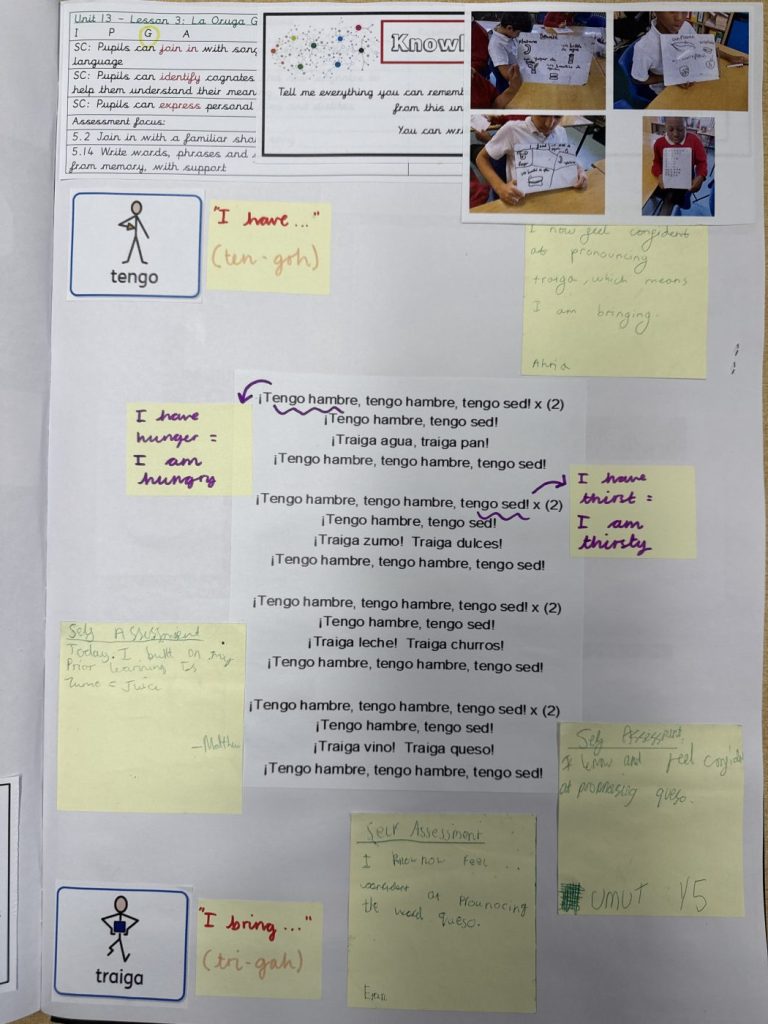 Unit 13 - Lesson 3: La Oruga G
I P G A
SC: Pupils can join in with song
language
SC: Pupils can identify cognates
help them understand their mean
SC: Pupils can express personal
Assessment focus:
5.2 Join in with a familiar
5.14 Write words, phrases and
from memory, with support
Knowl
Tell me everything you can rememb
from this un
You can wri
tengo
"I have..."
(ten-goh)
I now feel confident
at pronouncing
traiga, which means
I am bringing.
I have
hunger =
I am
hungry
¡Tengo hambre, tengo hambre, tengo sed! x (2)
¡Tengo hambre, tengo sed!
¡Traiga agua, traiga pan!
¡Tengo hambre, tengo hambre, tengo sed!
¡Tengo hambre, tengo hambre, tengo sed! x (2)
¡Tengo hambre, tengo sed!
¡Traiga zumo! Traiga dulces!
¡Tengo hambre, tengo hambre, tengo sed!
I have
thirst =
I am
thirsty
¡Tengo hambre, tengo hambre, tengo sed! x (2)
¡Tengo hambre, tengo sed!
¡Traiga leche! Traiga churros!
¡Tengo hambre, tengo hambre, tengo sed!
¡Tengo hambre, tengo hambre, tengo sed! x (2)
¡Tengo hambre, tengo sed!
¡Traiga vino! Traiga queso!
¡Tengo hambre, tengo hambre, tengo sed!
Self Assessment
Today I built on my
Prior learning Is
Zumo = Juice
-Matthew
Self Assessment
I know and feel
at queso.
UMUT Y5
Self Assessment
I know now feel ...
confident at
the word queso.
traiga
"I bring..."
(tri-gah)